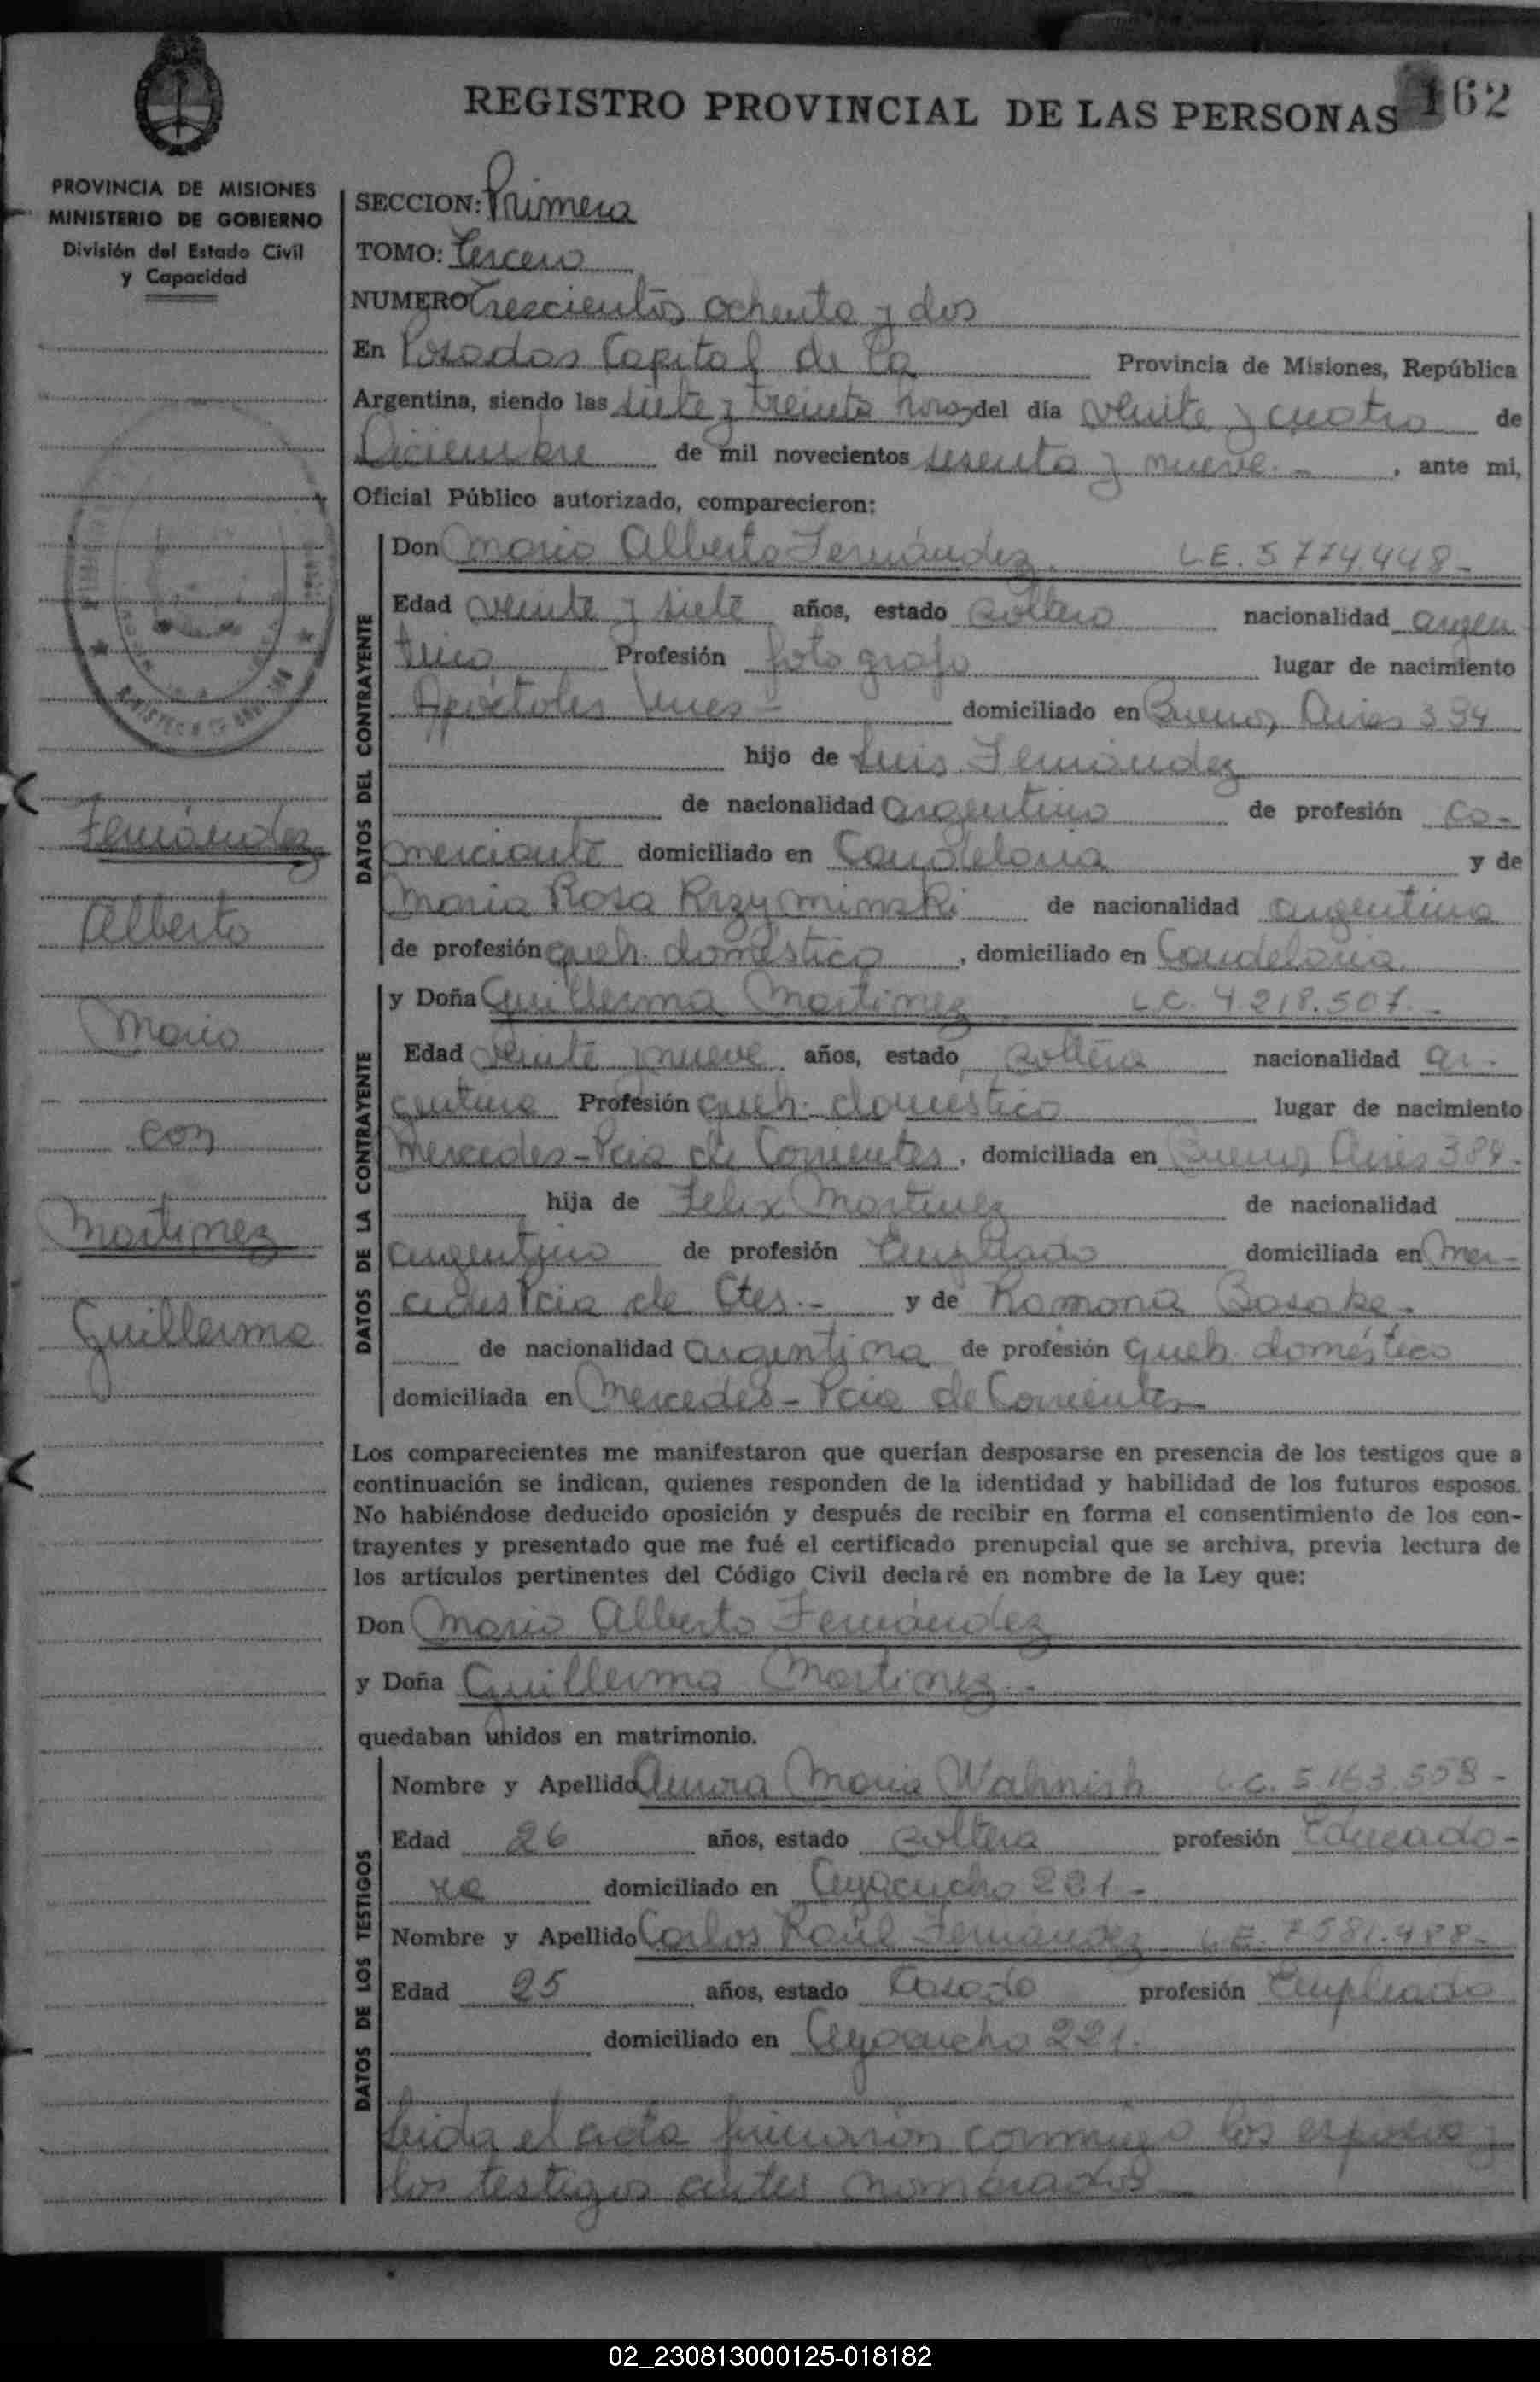 REGISTRO PROVINCIAL DE LAS PERSONAS 162
PROVINCIA DE MISIONES
MINISTERIO DE GOBIERNO
División del Estado Civil
y Capacidad
SECCION: Primera
TOMO: Tercero
NUMERO Trescientos ochenta y dos
En Posadas Capital de la Provincia de Misiones, República
Argentina, siendo las siete y treinta horas del día veinte y cuatro de
Diciembre de mil novecientos sesenta y nueve.- , ante mi,
Oficial Público autorizado, comparecieron:
DATOS DEL CONTRAYENTE
Don Mario Alberto Fernández. L.E. 5774.448-
Edad veinte y siete años, estado soltero nacionalidad argen
tino Profesión fotografo lugar de nacimiento
Apóstoles Mnes - domiciliado en Buenos Aires 384
hijo de Luis Fernández
de nacionalidad argentino de profesión co-
merciante domiciliado en Candelaria y de
Maria Rosa Krzyminski de nacionalidad argentina
de profesión queh. doméstico , domiciliado en Candelaria.
DATOS DE LA CONTRAYENTE
y Doña Guillerma Martinez L.C. 4.218.507.-
Edad veinte y nueve años, estado soltera nacionalidad ar-
gentina Profesión queh. domestico lugar de nacimiento
Mercedes-Pcia de Corrientes, domiciliada en Buenos Aires 384-
hija de Felix Martinez de nacionalidad
argentino de profesión Empleado domiciliada en Mer-
cedes Pcia de Ctes.- y de Ramona
de nacionalidad argentina de profesión queh. doméstico
domiciliada en Mercedes- Pcia de Corrientes
Los comparecientes me manifestaron que querían desposarse en presencia de los testigos que a
continuación se indican, quienes responden de la identidad y habilidad de los futuros esposos.
No habiéndose deducido oposición y después de recibir en forma el consentimiento de los con-
trayentes y presentado que me fué el certificado prenupcial que se archiva, previa lectura de
los artículos pertinentes del Código Civil declaré en nombre de la Ley que:
Don Mario Alberto Fernández
y Doña Guillerma Martinez.-
quedaban unidos en matrimonio.
DATOS DE LOS TESTIGOS
Nombre y Apellido Aurora Maria Wahnish L.C. 5.163.558-
Edad 26 años, estado soltera profesión Educado-
ra domiciliado en Ayacucho 221-
Nombre y Apellido Carlos Raúl Fernandez L.E. 7581.488-
Edad 25 años, estado Casado profesión Empleado
domiciliado en Ayacucho 221.
Leida el acta firmaron conmigo los esposos y
los testigos antes nombrados
Fernández
Alberto
Mario
con
Martinez
Guillerma
02_230813000125-018182